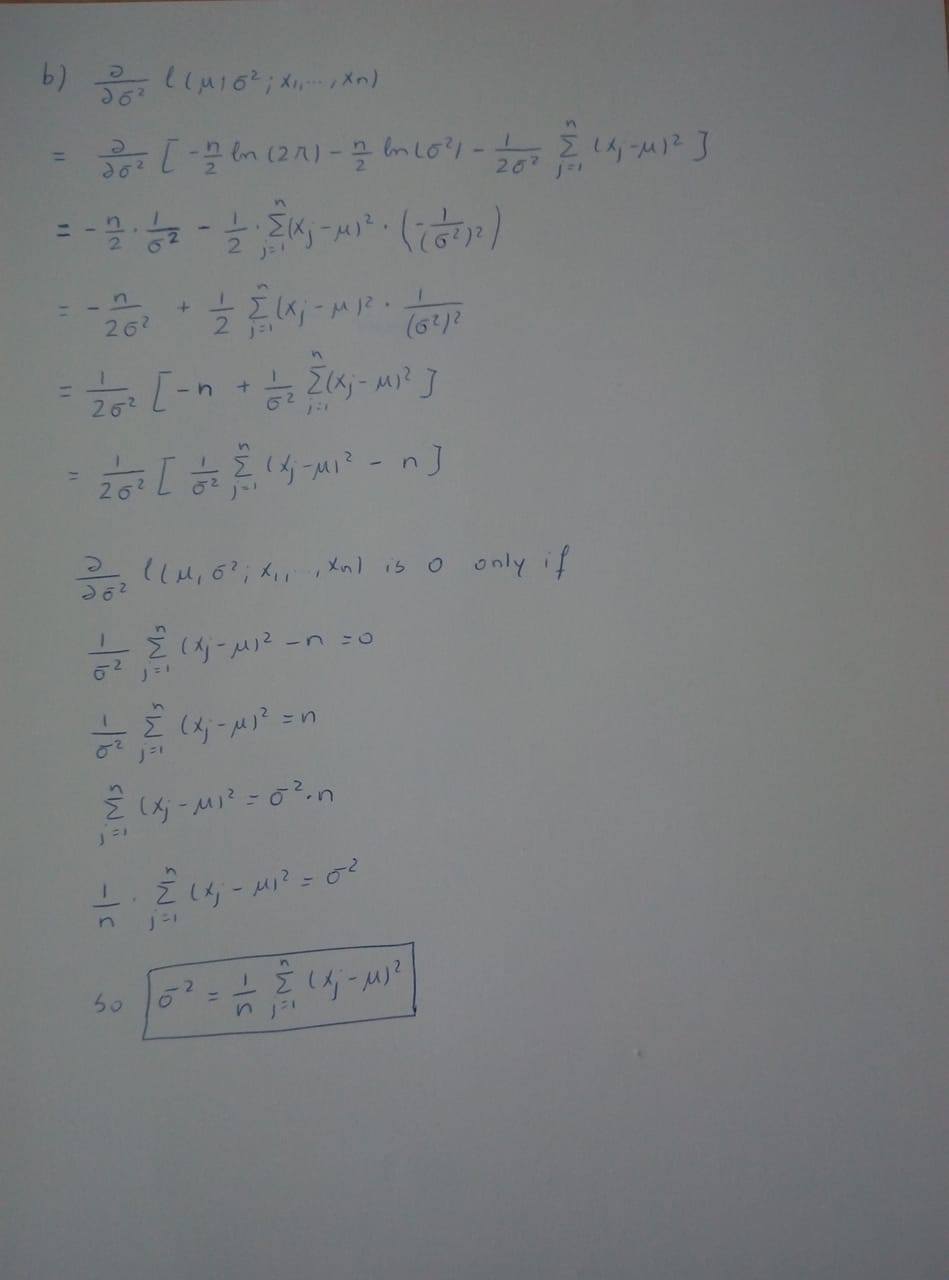 b) ∂/∂σ² l(μ, σ²; x₁, ..., xn)
= ∂/∂σ² [ -n/2 ln(2π) - n/2 ln(σ²) - 1/2σ² Σⁿⱼ₌₁ (xⱼ-μ)² ]
= -n/2 · 1/σ² - 1/2 · Σⁿⱼ₌₁ (xⱼ-μ)² · (-1/(σ²)²)
= -n/2σ² + 1/2 Σⁿⱼ₌₁ (xⱼ-μ)² · 1/(σ²)²
= 1/2σ² [ -n + 1/σ² Σⁿⱼ₌₁ (xⱼ-μ)² ]
= 1/2σ² [ 1/σ² Σⁿⱼ₌₁ (xⱼ-μ)² - n ]
∂/∂σ² l(μ, σ²; x₁, ..., xn) is 0 only if
1/σ² Σⁿⱼ₌₁ (xⱼ-μ)² - n = 0
1/σ² Σⁿⱼ₌₁ (xⱼ-μ)² = n
Σⁿⱼ₌₁ (xⱼ-μ)² = σ² · n
1/n · Σⁿⱼ₌₁ (xⱼ-μ)² = σ²
so σ² = 1/n Σⁿⱼ₌₁ (xⱼ-μ)²